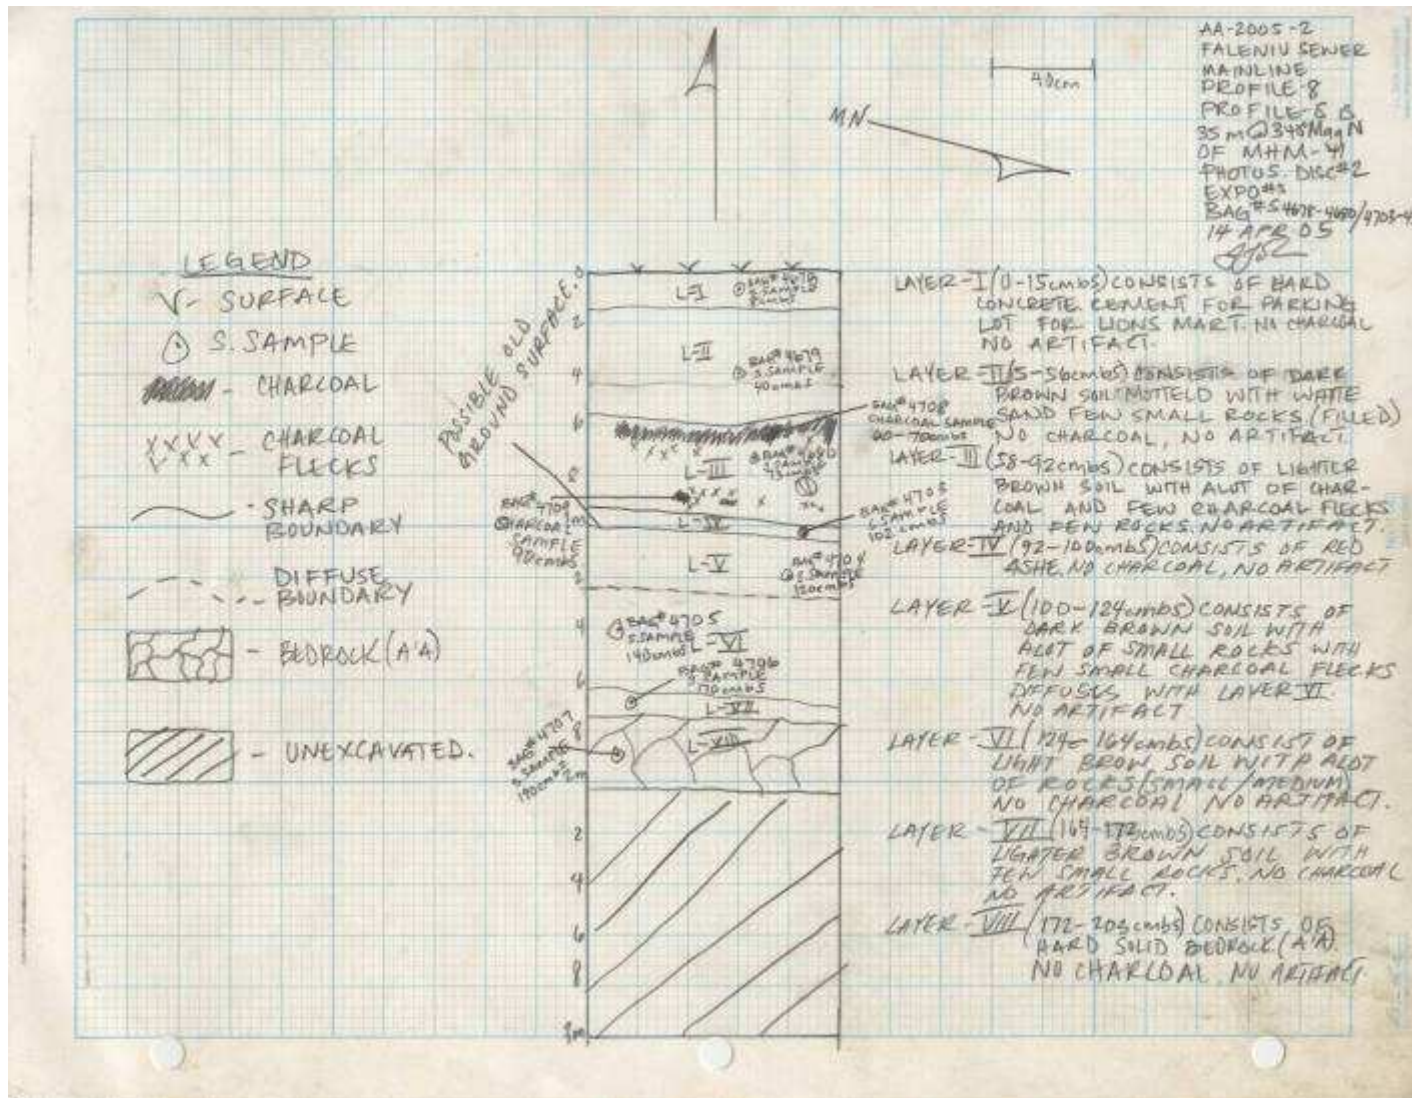 AA-2005-2
FALENIU SEWER
MAINLINE
PROFILE-8
PROFILE-8 is
35 m @ 348° Mag N
OF MHM-41
PHOTOS. DISC#2
EXPO#
BAG#S 4678-4680/4703-4
14 APR 05
40cm
MN
LEGEND
V- SURFACE
S. SAMPLE
- CHARCOAL
- CHARCOAL
FLECKS
- SHARP
BOUNDARY
- DIFFUSE
BOUNDARY
- BEDROCK (A'A)
- UNEXCAVATED.
POSSIBLE OLD
GROUND SURFACE.
0
2
4
6
8
m
2
4
6
8
2m
2
4
6
8
3m
L-I
BAG# 4678
S. SAMPLE
8cmbs
L-II
BAG# 4679
S. SAMPLE
40cmbs
BAG# 4708
CHARCOAL SAMPLE
60-70cmbs
L-III
BAG# 4680
S. SAMPLE
75cmbs
BAG# 4709
CHARCOAL
SAMPLE
90cmbs
L-IV
BAG# 4703
S. SAMPLE
102cmbs
L-V
BAG# 4704
S. SAMPLE
120cmbs
BAG# 4705
S. SAMPLE
140cmbs
L-VI
BAG# 4706
S. SAMPLE
170cmbs
L-VII
BAG# 4707
S. SAMPLE
190cmbs
L-VIII
LAYER-I (0-15cmbs) CONSISTS OF HARD
CONCRETE CEMENT FOR PARKING
LOT FOR LIONS MART. NO CHARCOAL
NO ARTIFACT.
LAYER-II (15-56cmbs) CONSISTS OF DARK
BROWN SOIL MOTTELD WITH WHITE
SAND FEW SMALL ROCKS (FILLED)
NO CHARCOAL, NO ARTIFACT
LAYER-III (58-92cmbs) CONSISTS OF LIGHTER
BROWN SOIL WITH ALOT OF CHAR-
COAL AND FEW CHARCOAL FLECKS
AND FEW ROCKS. NO ARTIFACT.
LAYER-IV (92-100cmbs) CONSISTS OF RED
ASHE. NO CHARCOAL, NO ARTIFACT
LAYER-V (100-124cmbs) CONSISTS OF
DARK BROWN SOIL WITH
ALOT OF SMALL ROCKS WITH
FEW SMALL CHARCOAL FLECKS
DIFFUSES WITH LAYER VI.
NO ARTIFACT
LAYER-VI (124-164cmbs) CONSIST OF
LIGHT BROW SOIL WITH ALOT
OF ROCKS (SMALL/MEDIUM)
NO CHARCOAL NO ARTIFACT.
LAYER-VII (164-172cmbs) CONSISTS OF
LIGHTER BROWN SOIL WITH
FEW SMALL ROCKS, NO CHARCOAL
NO ARTIFACT.
LAYER-VIII (172-203cmbs) CONSISTS OF
HARD SOLID BEDROCK (A'A)
NO CHARCOAL, NO ARTIFACT